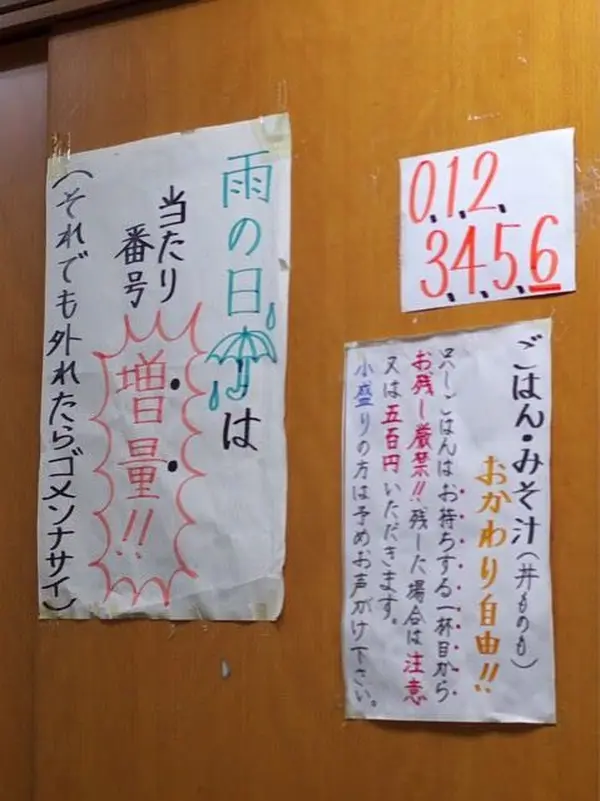 雨の日は
当たり
番号
増量!!
(それでも外れたらゴメンナサイ)
0,1,2,
3,4,5,6
ごはん・みそ汁(丼ものも)
おかわり自由!!
只しごはんはお待ちする一杯目から
お残し厳禁!!残した場合は注意
又は五百円いただきます。
小盛りの方は予めお声がけ下さい。